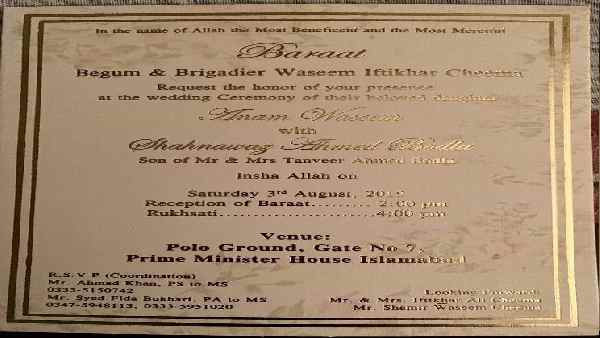 In the name of Allah the Most Beneficent and the Most Merciful
Baraat
Begum & Brigadier Waseem Iftikhar Cheema
Request the honor of your presence
at the wedding Ceremony of their beloved daughter
Anam Waseem
with
Shahnawaz Ahmed Bodla
Son of Mr & Mrs Tanveer Ahmed Bodla
Insha Allah on
Saturday 3rd August,
Reception of Baraat......... 2:00 pm
Rukhsati.......................4:00 pm
Venue:
Polo Ground, Gate No 7,
Prime Minister House Islamabad
R.S.V.P (Coordination)
Mr. Ahmad Khan, PS to MS
0335-5150742
Mr. Syed Fida Bukhari, PA to MS
0347-5948113, 0333-5951020
Looking Forward
Mr. & Mrs. Iftikhar Ali Cheema
Mr. Shemir Waseem Cheema